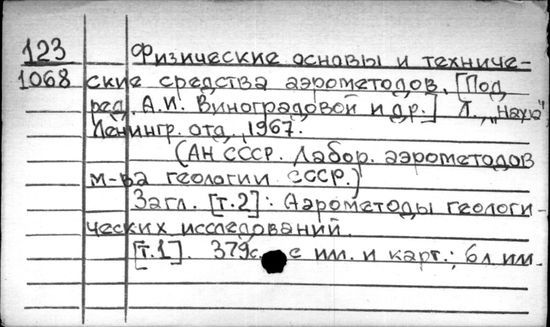 123 Физические основы и техниче-
1068 ские средства аэрометодов. [Под
ред. А.И. Виноградовой и др.] Л., „Наука"
Ленингр. отд, 1967.
(АН СССР. Лабор. аэрометодов
м-ва геологии СССР.)
Загл. [т.2]: Аэрометоды геологи-
ческих исследований.
[т.1]. 379с. с ил. и карт.; 6л ил.